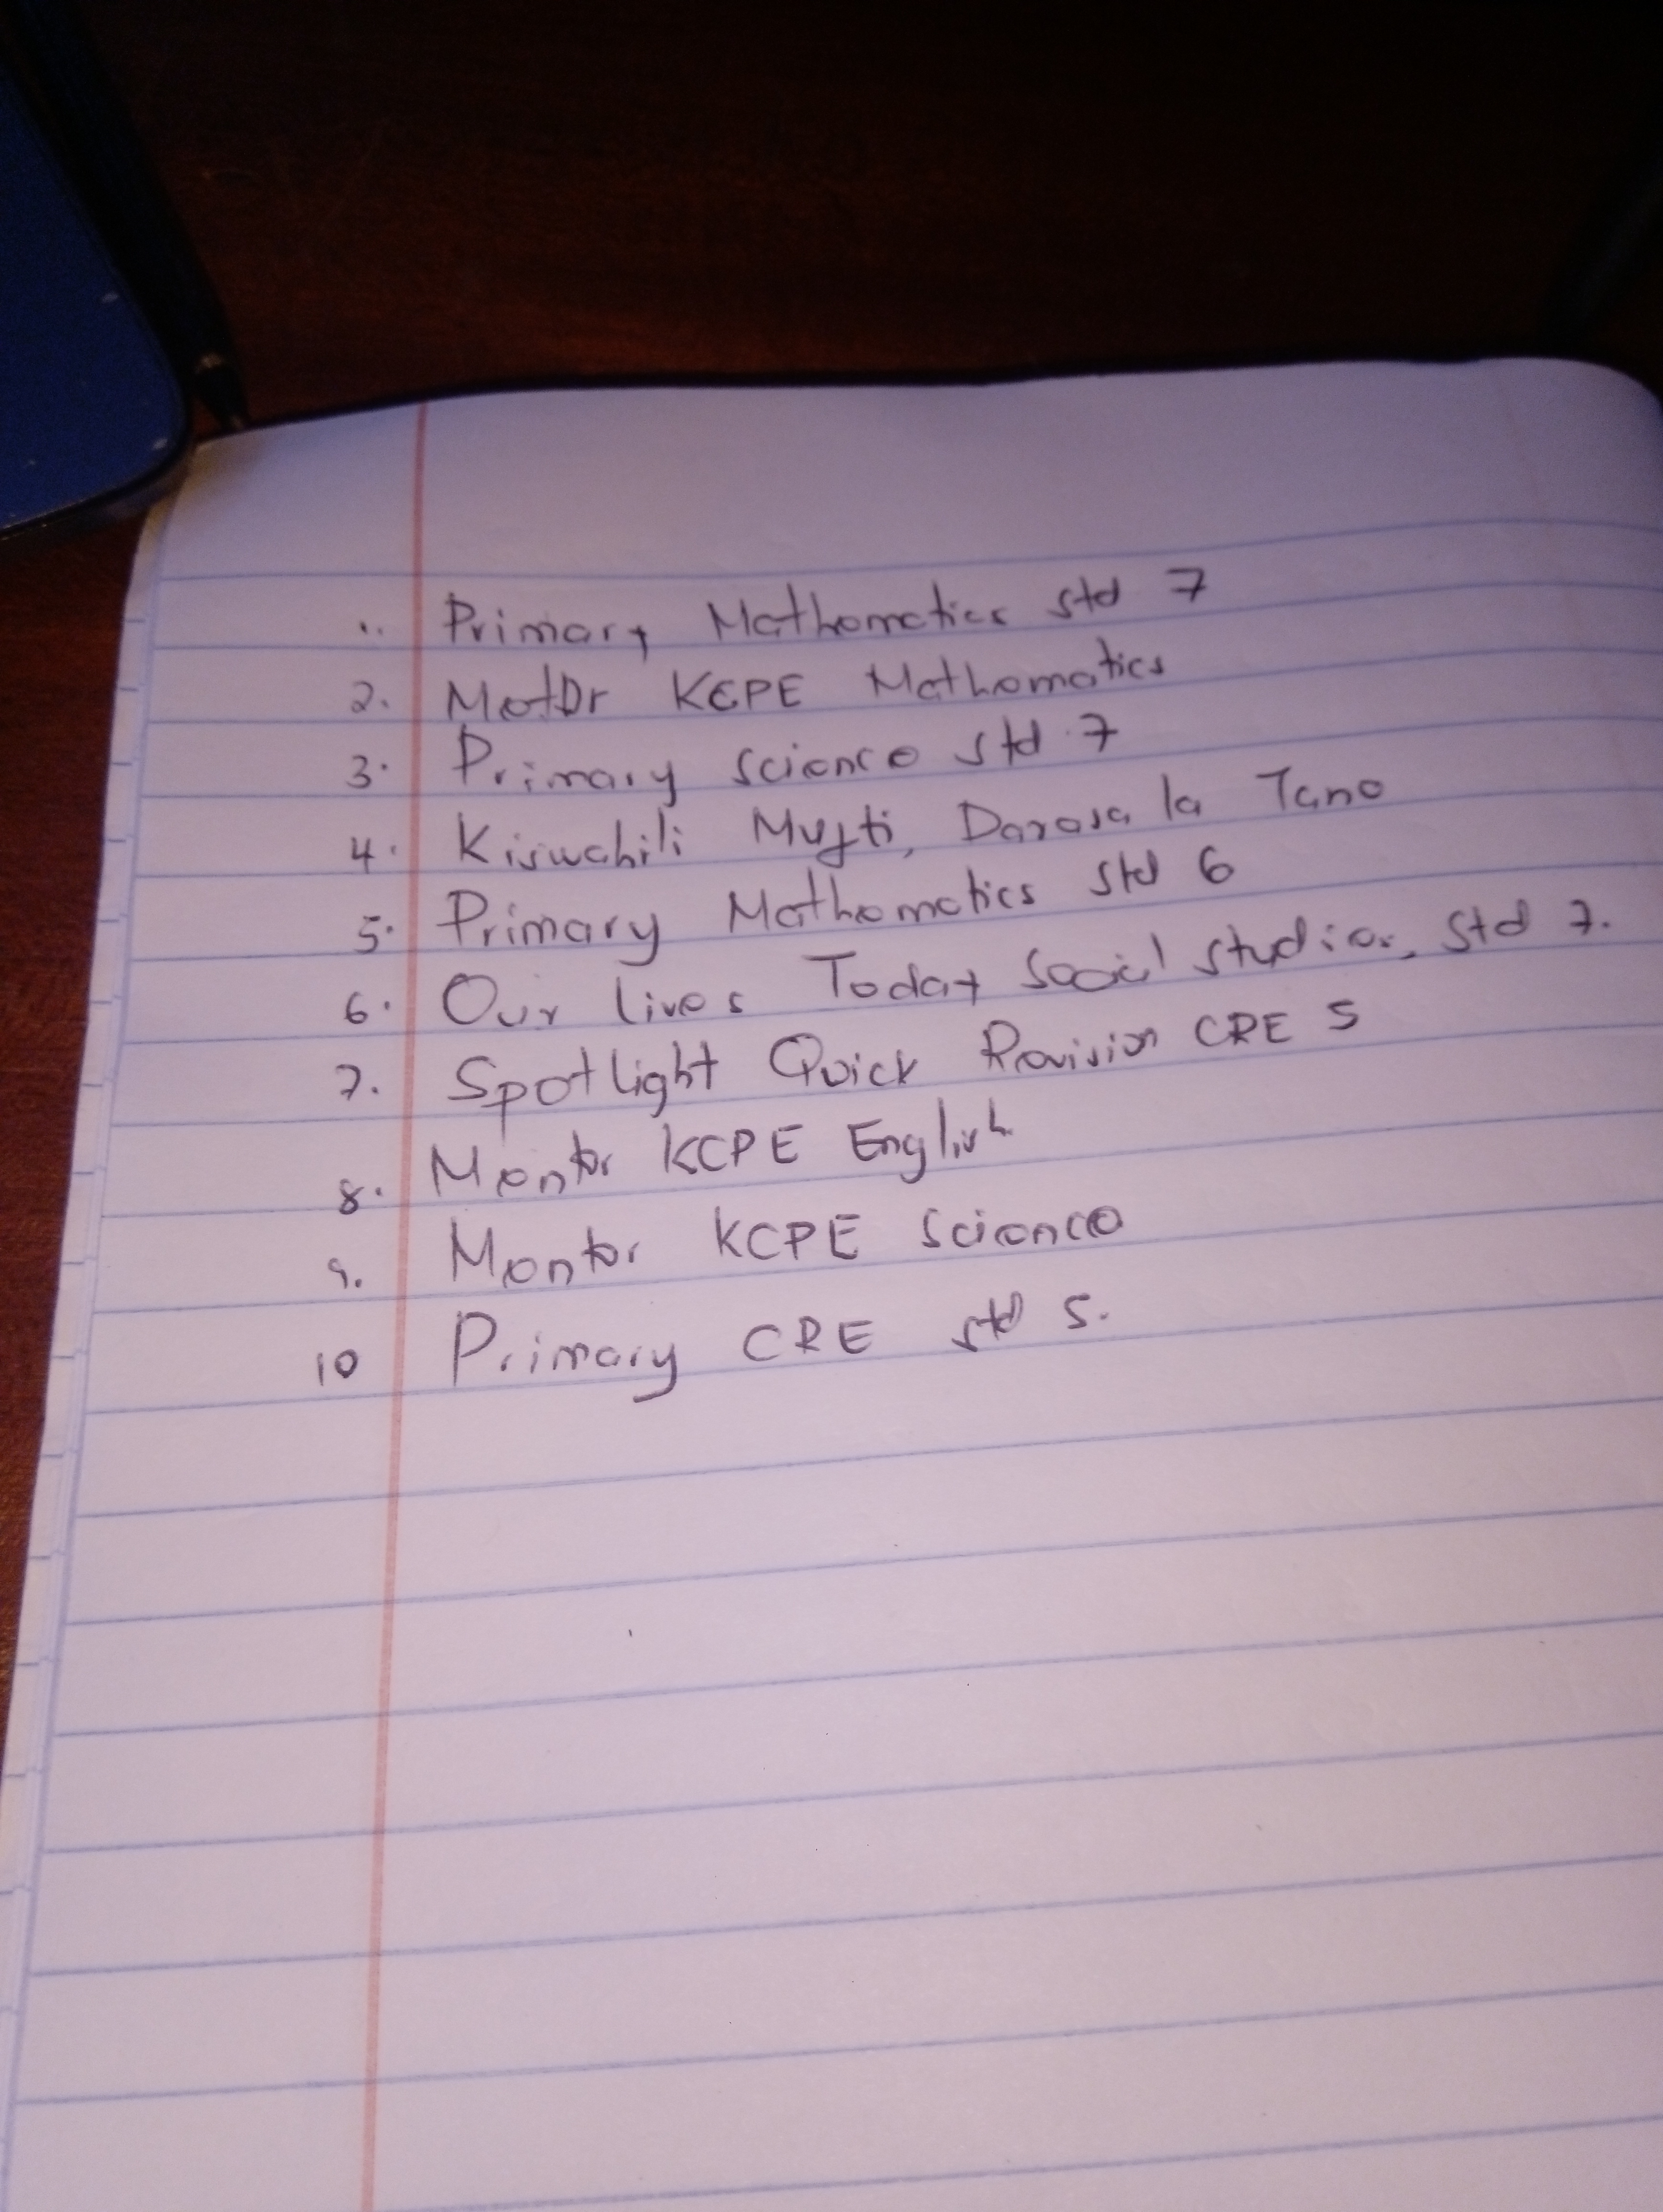 1. Primary Mathematics std 7
2. Motor KCPE Mathematics
3. Primary science std 7
4. Kiswahili Mufti, Darasa la Tano
5. Primary Mathematics std 6
6. Our lives Today social studies, Std 7.
7. Spotlight Quick Revision CRE 5
8. Mentor KCPE English
9. Mentor KCPE science
10 Primary CRE std 5.